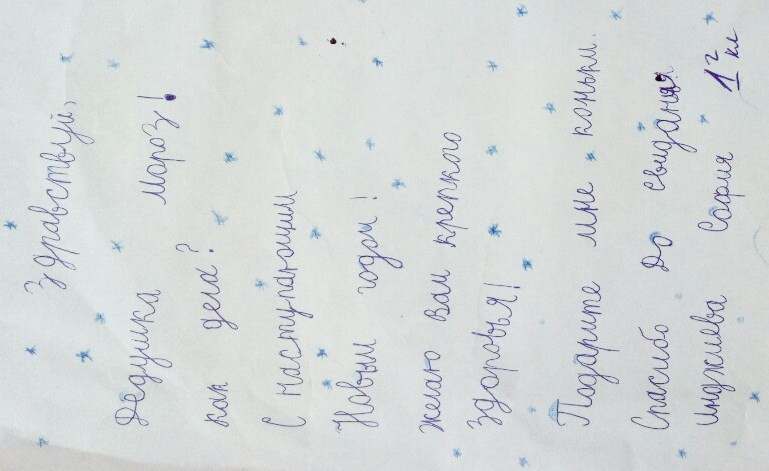 Здравствуй,
Дедушка Мороз!
как дела?
С наступающим
Новым годом!
желаю Вам крепкого
Здоровья!
Подарите мне коньки.
Спасибо До свидания.
Инджиева София 1г кл